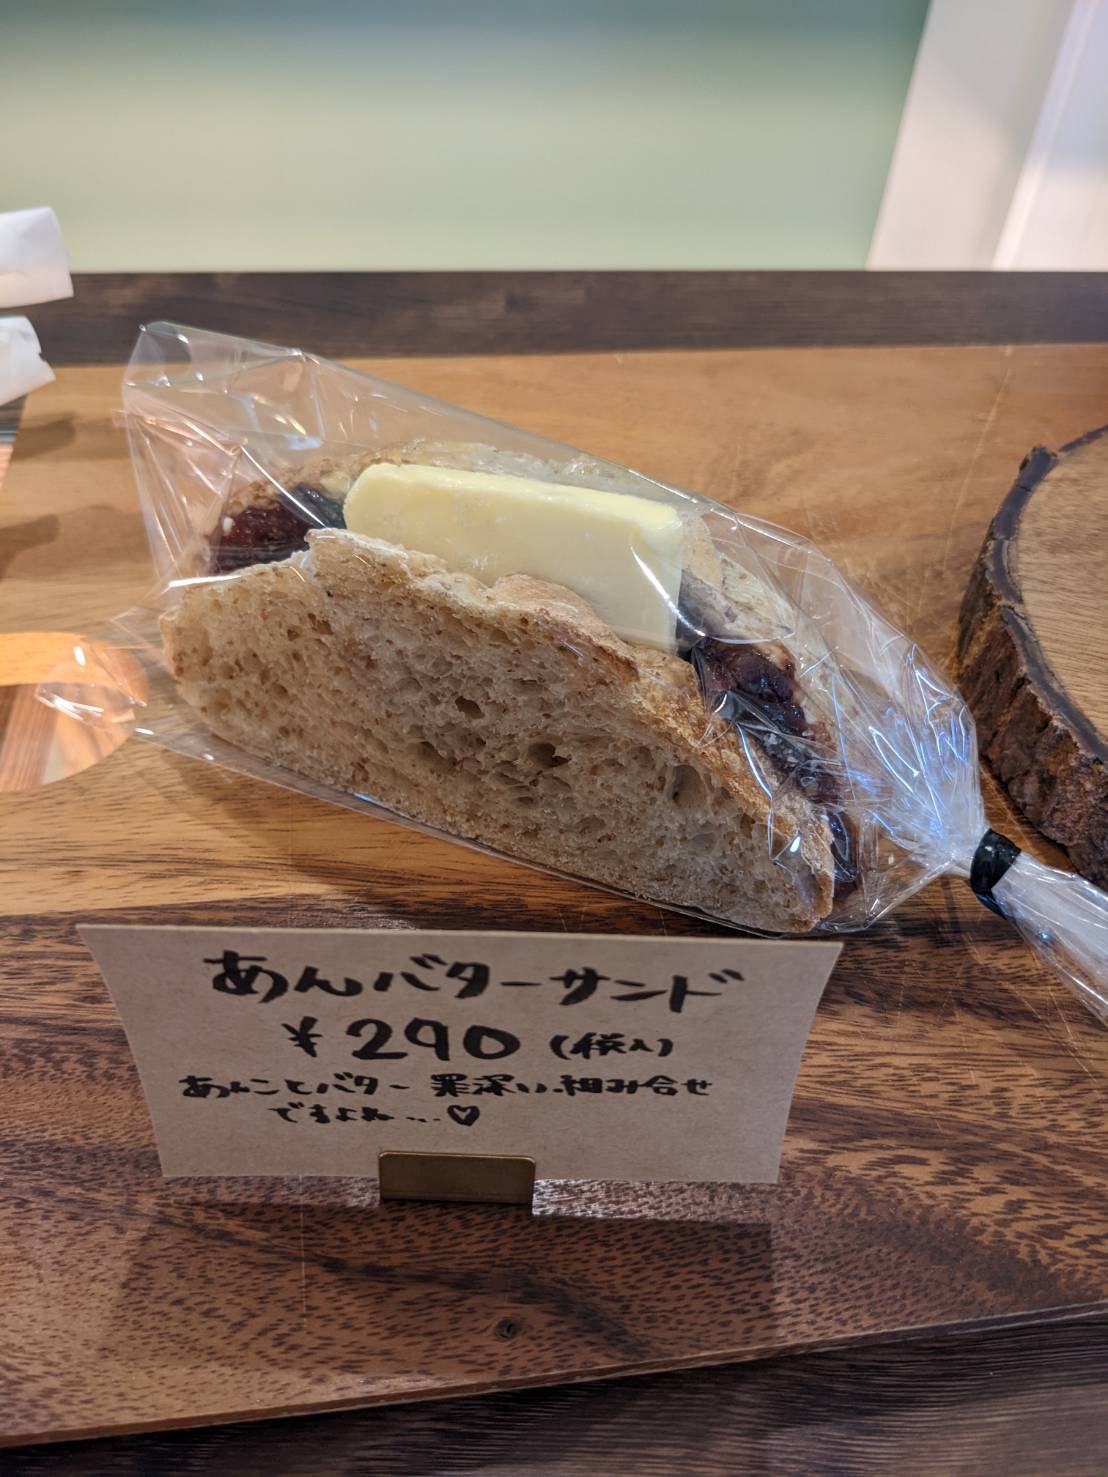 あんバターサンド
¥290 (税入)
あんことバター 罪深い組み合せ
ですよね...♡